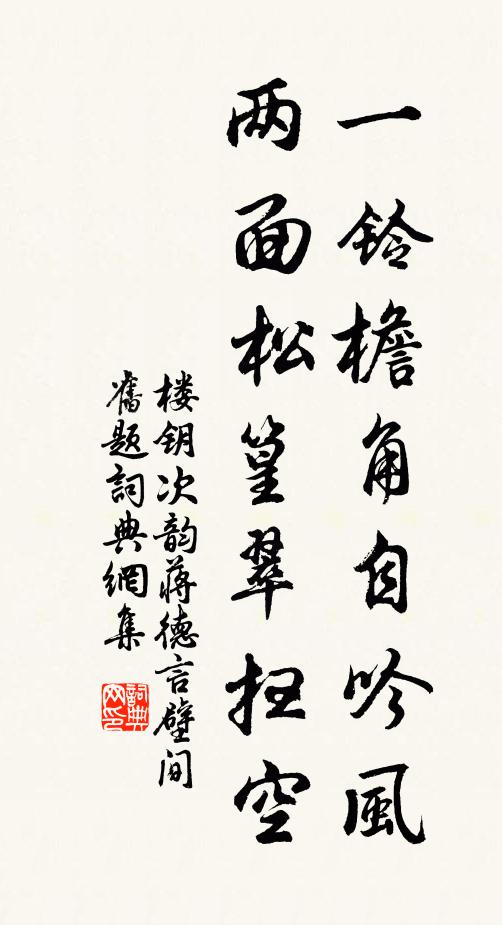 一鈴檐角自吟風
两面松篁翠扫空
楼钥次韵蒋德言壁间
舊题詞典網集
詞典
网印